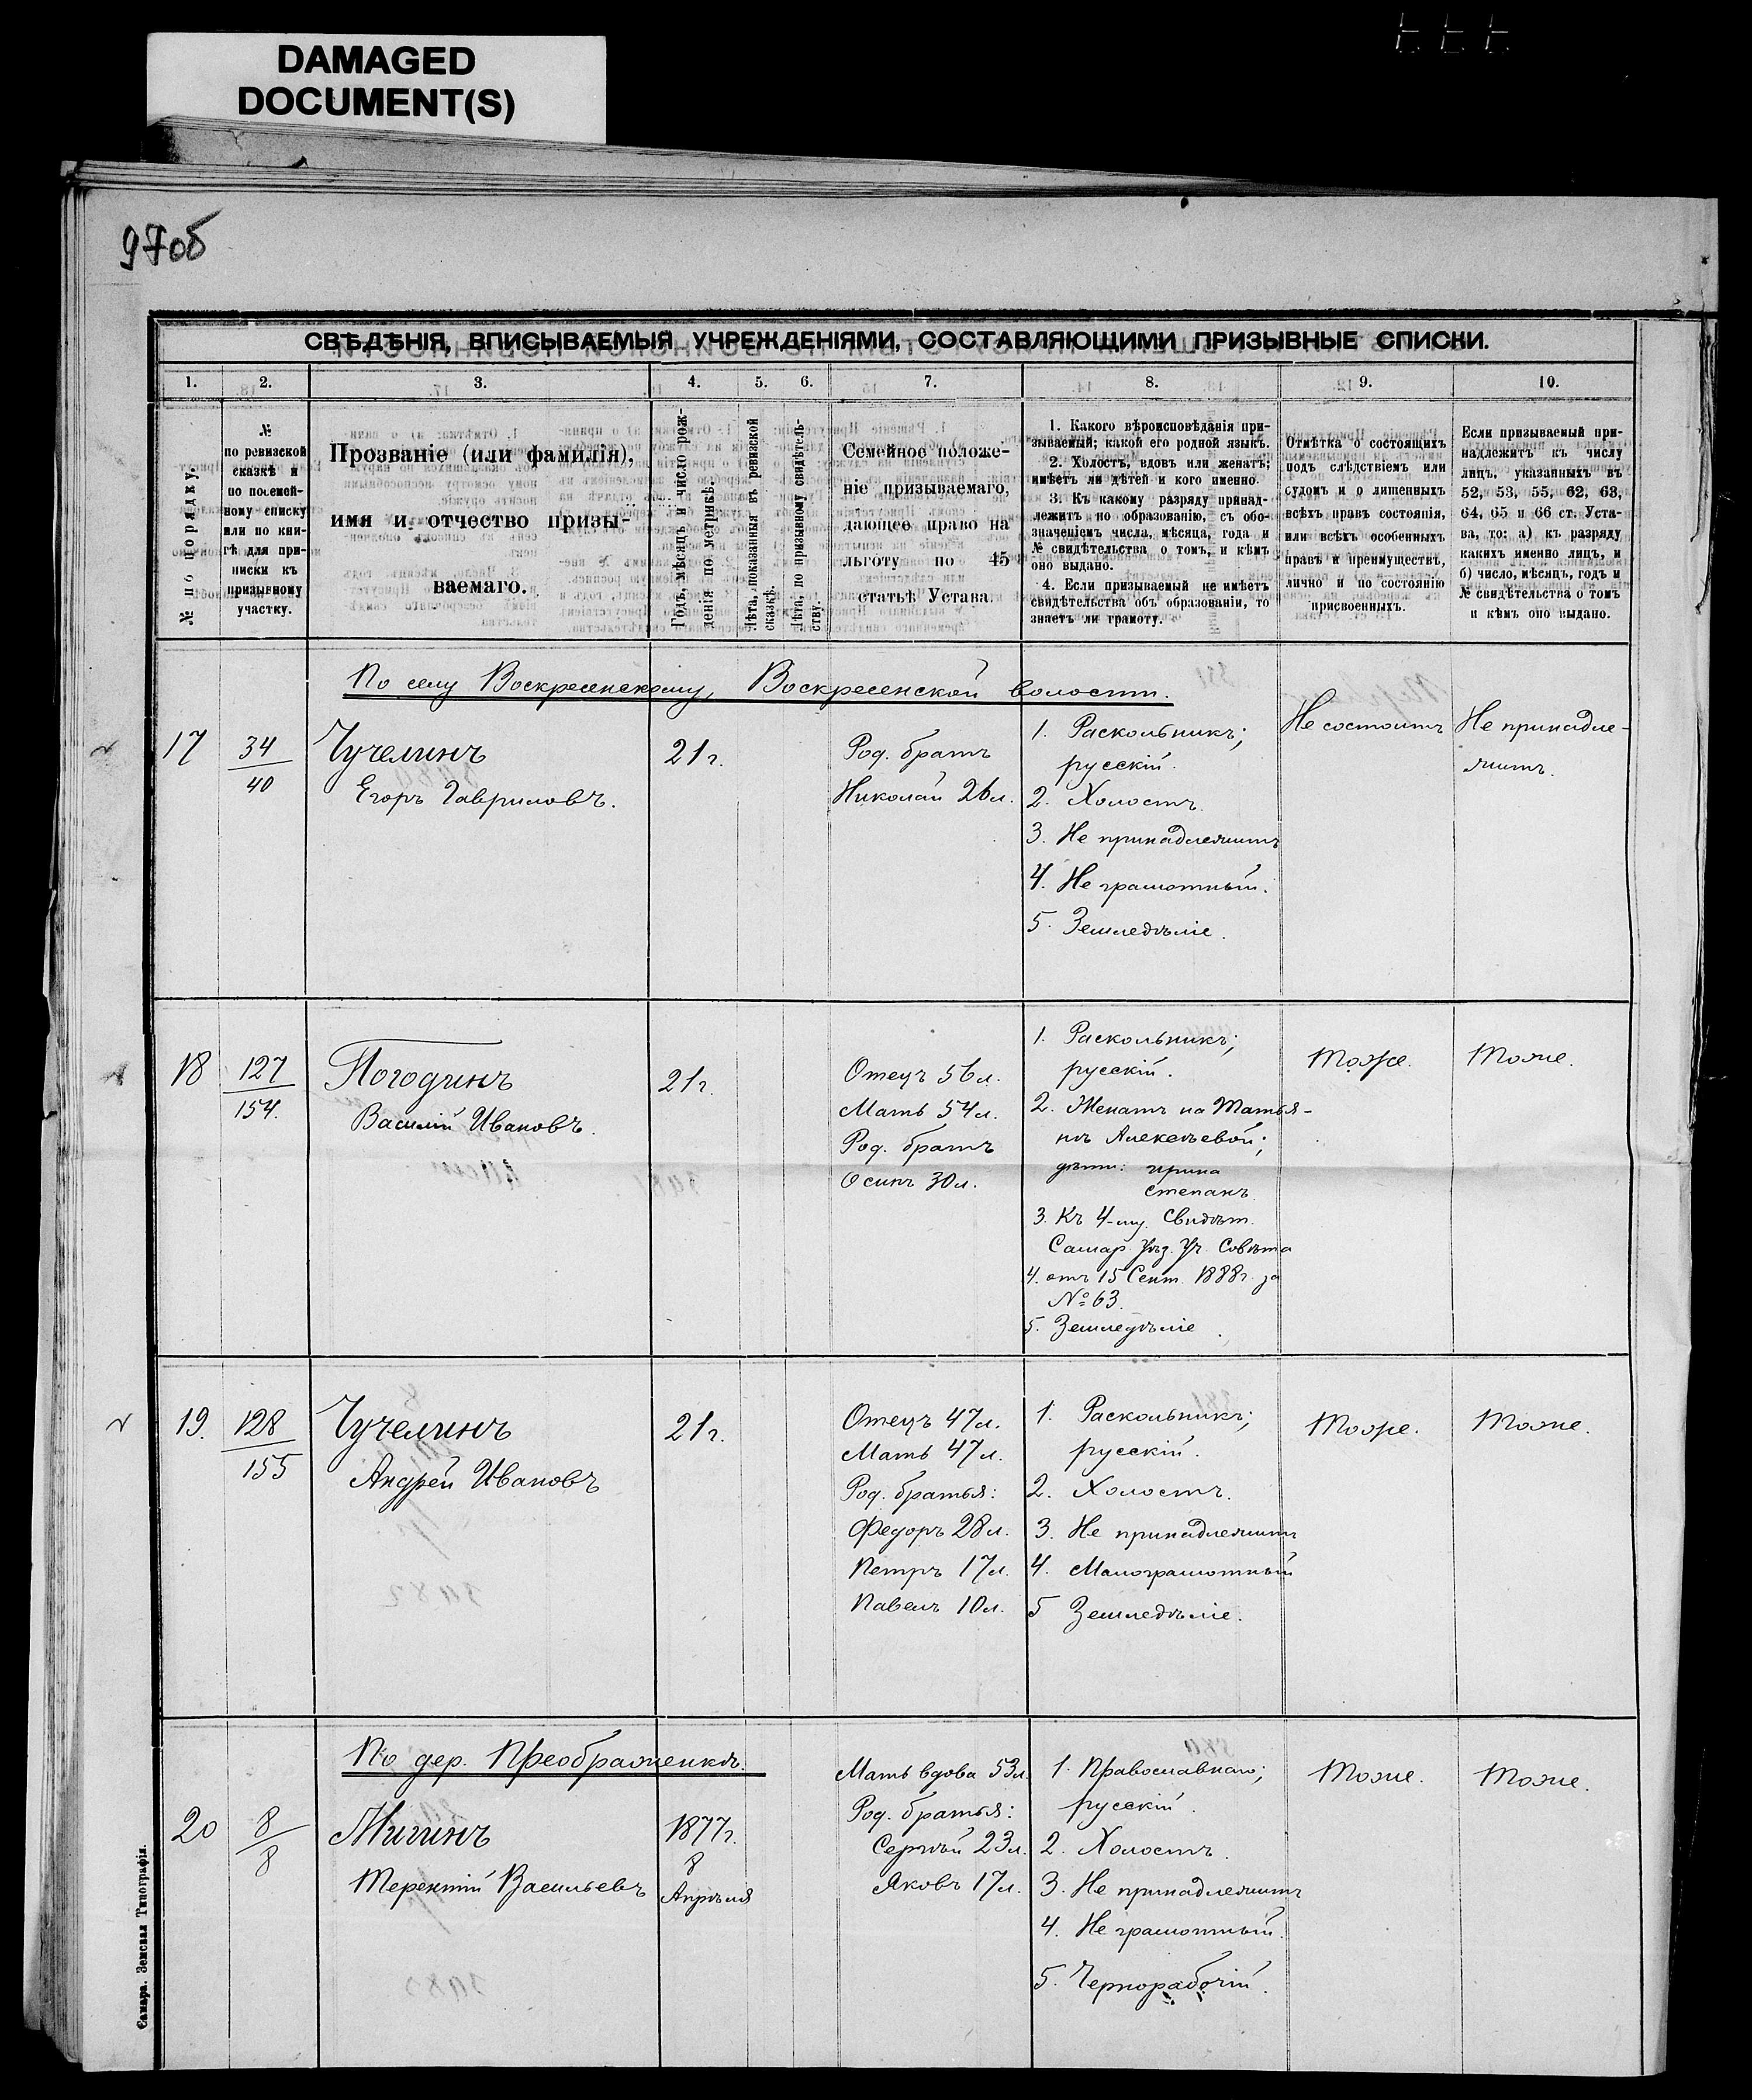 DAMAGED
DOCUMENT(S)
97об
СВѢДѢНІЯ, ВПИСЫВАЕМЫЯ УЧРЕЖДЕНІЯМИ, СОСТАВЛЯЮЩИМИ ПРИЗЫВНЫЕ СПИСКИ.
1. 2. 3. 4. 5. 6. 7. 8. 9. 10.
№ по порядку.
№
по ревизской
сказкѣ и
по посемей-
ному списку
или по кни-
гѣ для при-
писки къ
призывному
участку.
Прозваніе (или фамилія),
имя и отчество призы-
ваемаго.
Годъ, мѣсяцъ и число рож-
денія по метрикѣ.
Лѣта, показанныя въ ревизской
сказкѣ.
Лѣта, по призывному свидѣтель-
ству.
Семейное положе-
ніе призываемаго,
дающее право на
льготу по 45
статьѣ Устава.
1. Какого вѣроисповѣданія при-
зываемый; какой его родной языкъ.
2. Холостъ, вдовъ или женатъ;
имѣетъ ли дѣтей и кого именно.
3. Къ какому разряду принад-
лежитъ по образованію, съ обо-
значеніемъ числа, мѣсяца, года и
№ свидѣтельства о томъ, и кѣмъ
оно выдано.
4. Если призываемый не имѣетъ
свидѣтельства объ образованіи, то
знаетъ ли грамоту.
Отмѣтка о состоящихъ
подъ слѣдствіемъ или
судомъ и о лишенныхъ
всѣхъ правъ состоянія,
или всѣхъ особенныхъ
правъ и преимуществъ,
лично и по состоянію
присвоенныхъ.
Если призываемый при-
надлежитъ къ числу
лицъ, указанныхъ въ
52, 53, 55, 62, 63,
64, 65 и 66 ст. Уста-
ва, то: а) къ разряду
какихъ именно лицъ, и
б) число, мѣсяцъ, годъ и
№ свидѣтельства о томъ
и кѣмъ оно выдано.
По селу Воскресенскому, Воскресенской волости.
17
34
40
Чучелинъ
Егоръ Гавриловъ.
21 г.
Род. братъ
Николай 26 л.
1. Раскольникъ;
русскій.
2. Холостъ.
3. Не принадлежитъ
4. Не грамотный.
5. Земледѣліе.
Не состоитъ
Не принадле-
житъ.
18
127
154.
Погодинъ
Василій Ивановъ.
21 г.
Отецъ 56 л.
Мать 54 л.
Род. братъ
Осипъ 30 л.
1. Раскольникъ;
русскій.
2. Женатъ на Татья-
нѣ Алексѣевой;
дѣти: Ирина
Степанъ.
3. Къ 4-му. Свидѣт.
Самар. Уѣз. Уч. Совѣта
4. отъ 15 Сент. 1888 г. за
№ 63.
5. Земледѣліе.
Тоже.
Тоже.
19.
128
155
Чучелинъ
Андрей Ивановъ
21 г.
Отецъ 47 л.
Мать 47 л.
Род. братья:
Федоръ 28 л.
Петръ 17 л.
Павелъ 10 л.
1. Раскольникъ;
русскій.
2. Холостъ.
3. Не принадлежитъ
4. Малограмотный
5 Земледѣліе.
Тоже.
Тоже.
По дер. Преображенкѣ.
20
8
8
Мигинъ
Терентій Васильевъ
1877 г.
8
Апрѣля
Мать вдова 53 л.
Род. братья:
Сергѣй 23 л.
Яковъ 17 л.
1. Православнаго;
русскій.
2. Холостъ.
3. Не принадлежитъ
4. Не грамотный.
5. Чернорабочій.
Тоже.
Тоже.
Самара. Земская Типографія.